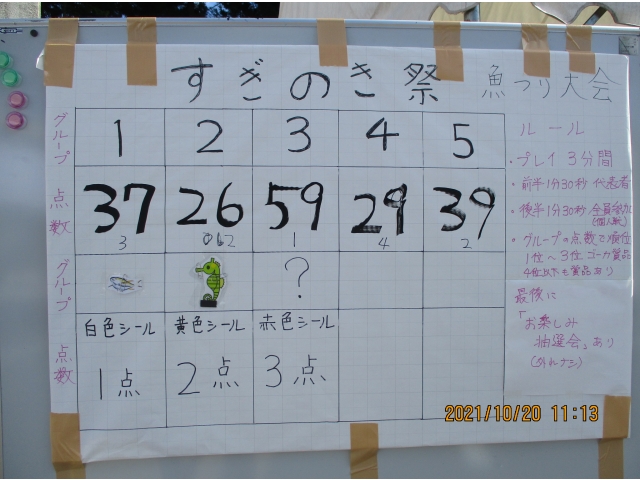 すぎのき祭 魚つり大会
グループ 1 2 3 4 5
点数 37 26 59 29 39
3 1 4 2
グループ ?
点数 白色シール 黄色シール 赤色シール
1点 2点 3点
ルール
・プレイ 3分間
・前半1分30秒 代表者
・後半1分30秒 全員参加
(個人戦)
・グループの点数で順位
1位〜3位ゴーカ賞品
4位以下も賞品あり
最後に
「お楽しみ
抽選会」あり
(外れナシ)
2021/10/20 11:13